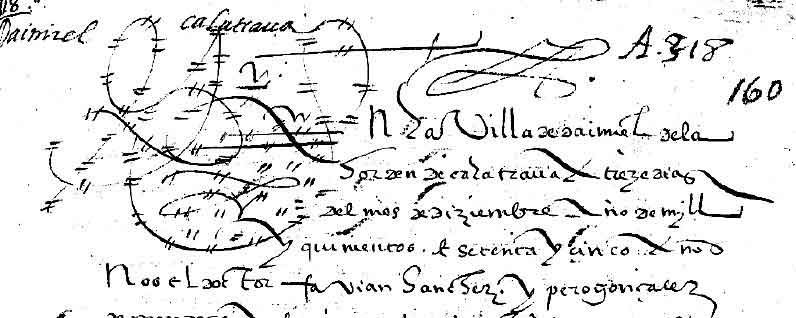 18.
Daimiel calatraua
A. 318
160
EN la Villa de daimiel de la
horden de calatraua A treze dias
del mes de diziembre Año de mill
quinientos. E setenta y cinco Años
Nos el doctor fauian Sanchez. y pero gonçalez